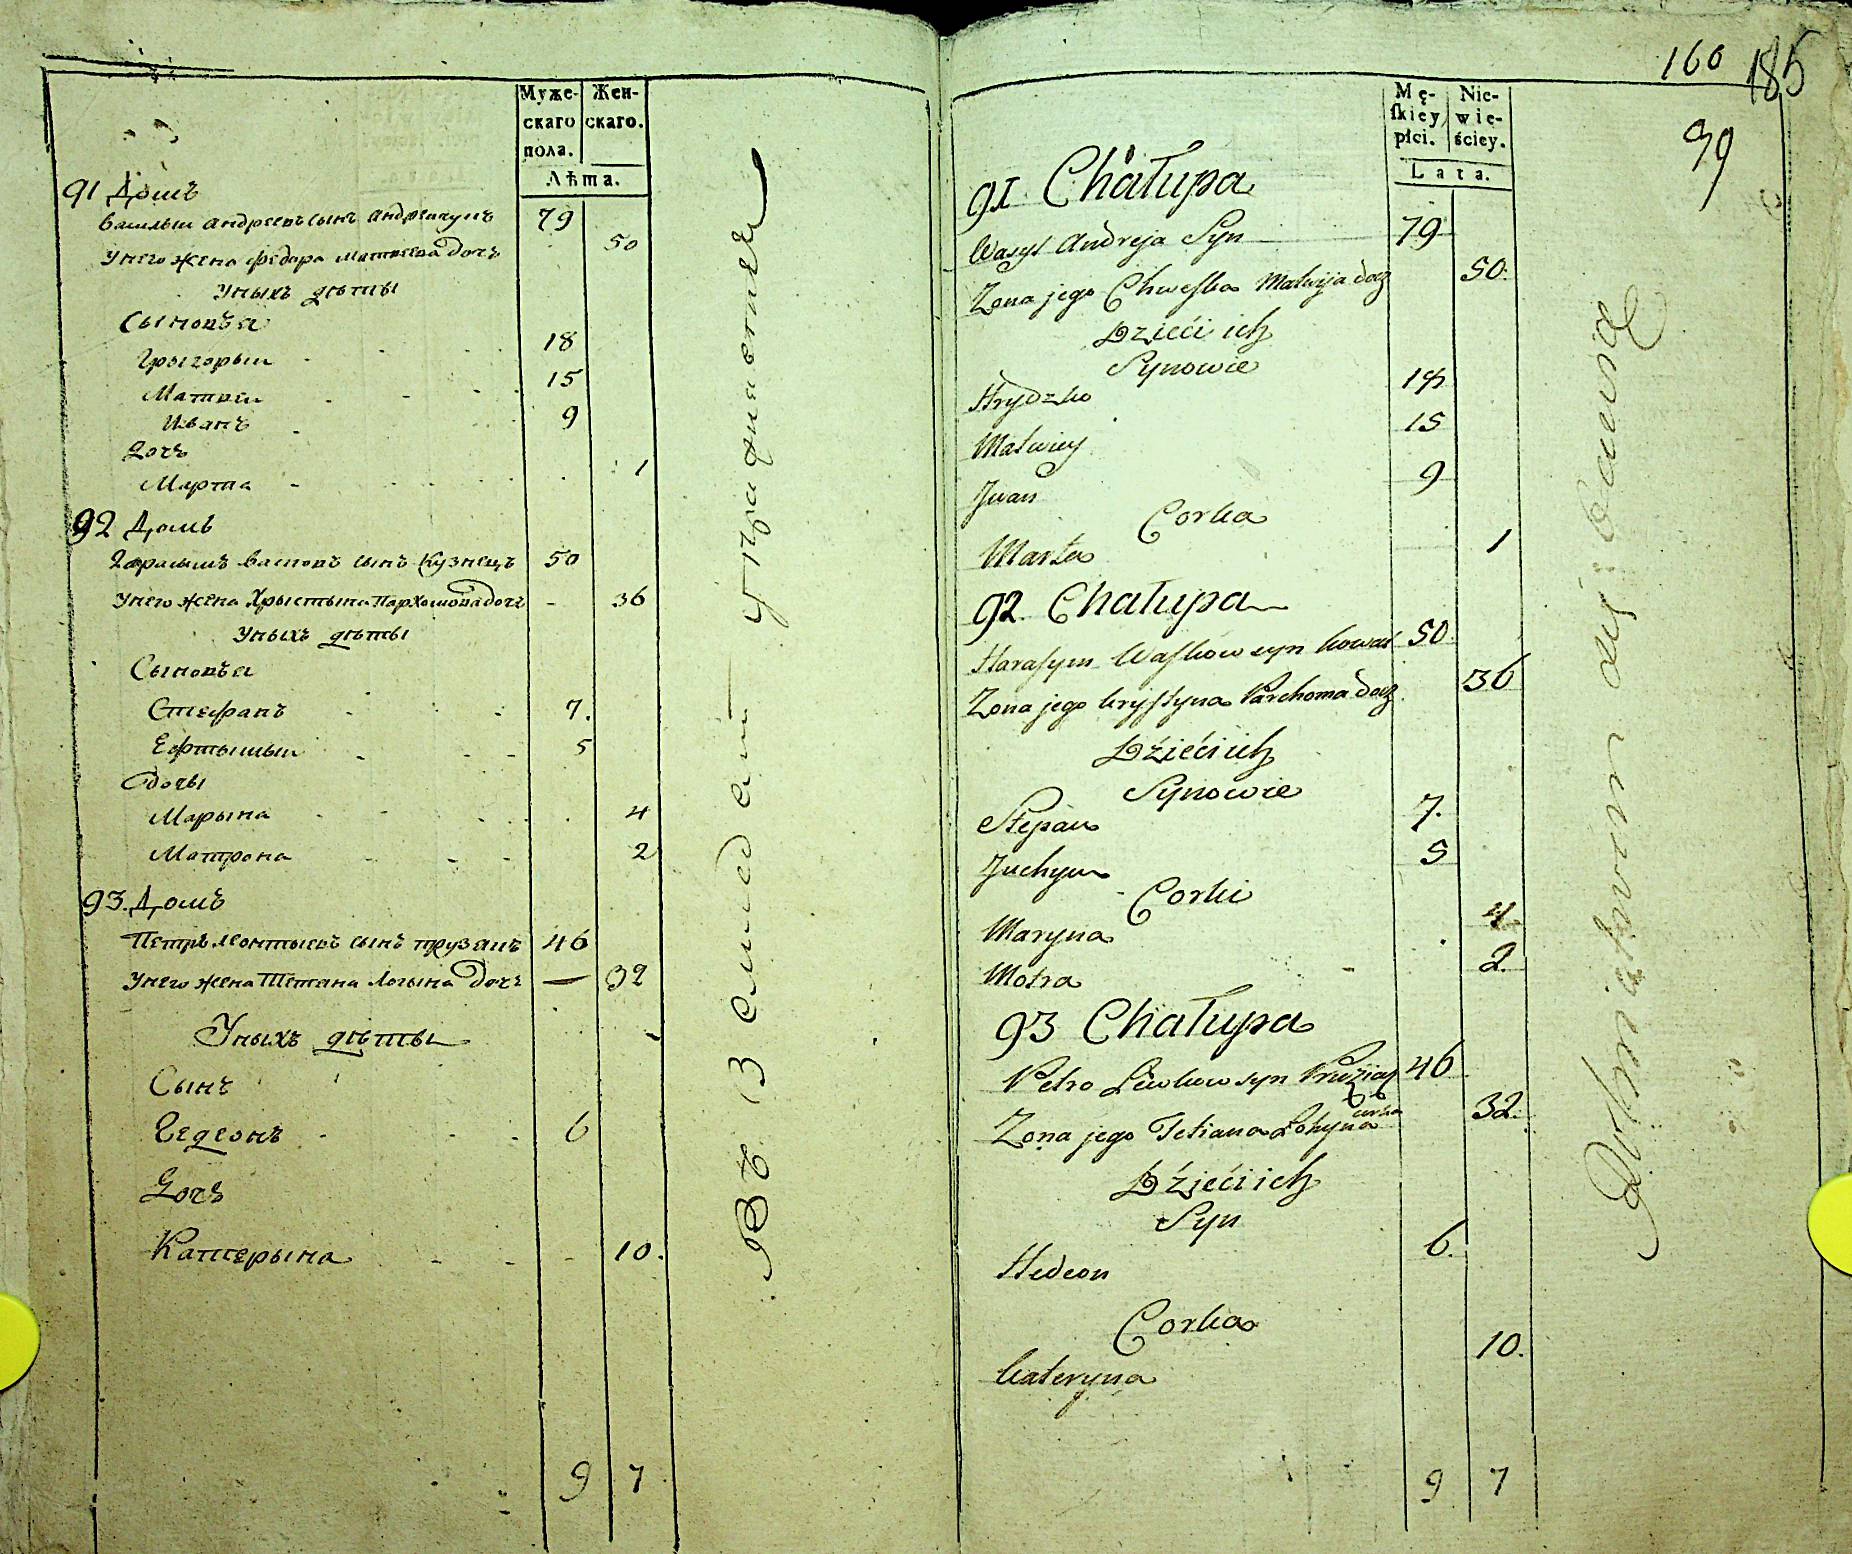 Муже-
скаго
пола.
Жен-
скаго.
Лѣта.
91 Домъ
Василы Андреевъ сынъ Андрейчукъ 79
У него жена Федора Матвеева дочъ 50
У ныхъ дѣты
Сыновъя
Грыгорый 18
Матвей 15
Иванъ 9
Дочъ
Марта 1
92 Домъ
Гарасымъ Васковъ сынъ Кузнецъ 50
У него жена Хрыстына Пархомова дочъ 36
У ныхъ дѣты
Сыновъя
Стефанъ 7.
Ефтымый 5
Дочы
Марына 4
Матрона 2
93. Домъ
Петръ Леонтыевъ сынъ 46
У него жена Тетяна Логына дочъ 32
У ныхъ дѣты
Сынъ
Гедеонъ 6
Дочъ
Катерына 10.
9 7
Въ земледелии упражняются
160 185
39
Mę-
ſkiey
płci.
Nie-
wie-
ściey.
Lata.
91 Chałupa
Wasyl Andreja Syn 79
Zona jego Chweſka Matwija Docz 50.
Dzieći ich
Synowie
Hrydzko 18
Matwiey 15
Jwan 9
Corka
Marta 1
92 Chałupa
Haraſym Waſkow syn Kowal 50
Zona jego Kryſtyna Parchoma Docz 36
Dźieći ich
Synowie
Stepan 7.
Juchym 5
Corki
Maryna 4
Motra 2.
93 Chałupa
Petro Lewkow syn 46
Zona jego Tetiana Łohyna Curka 32.
Dźieći ich
Syn
Hedeon 6.
Corka
Kateryna 10.
9 7
Rolnictwem się bawią